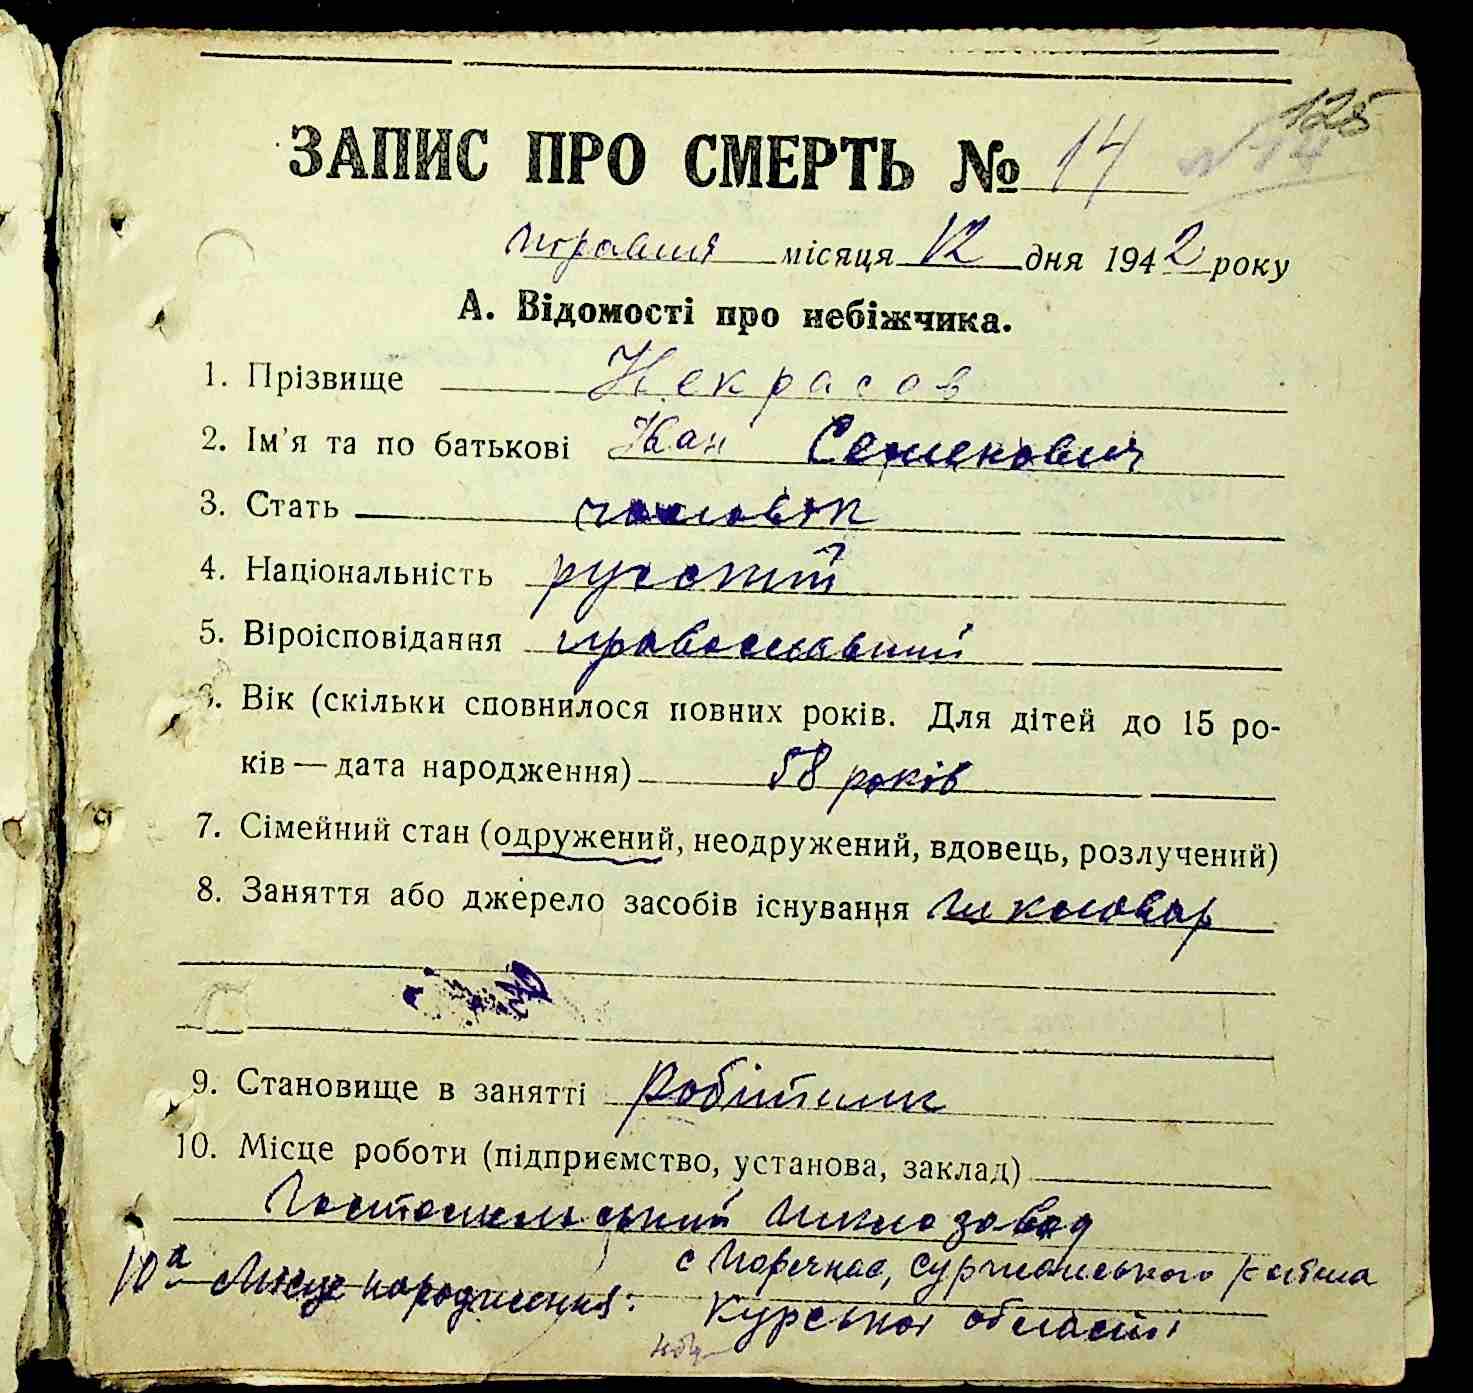 125
ЗАПИС ПРО СМЕРТЬ № 14 № 14
травня місяця 12 дня 1942 року
А. Відомості про небіжчика.
1. Прізвище Некрасов
2. Ім'я та по батькові Іван Семенович
3. Стать чоловік
4. Національність руський
5. Віроісповідання православний
6. Вік (скільки сповнилося повних років. Для дітей до 15 ро-
ків — дата народження) 58 років
7. Сімейний стан (одружений, неодружений, вдовець, розлучений)
8. Заняття або джерело засобів існування
9. Становище в занятті Робітник
10. Місце роботи (підприємство, установа, заклад)
завод
10а Місце народження: с
Курської області